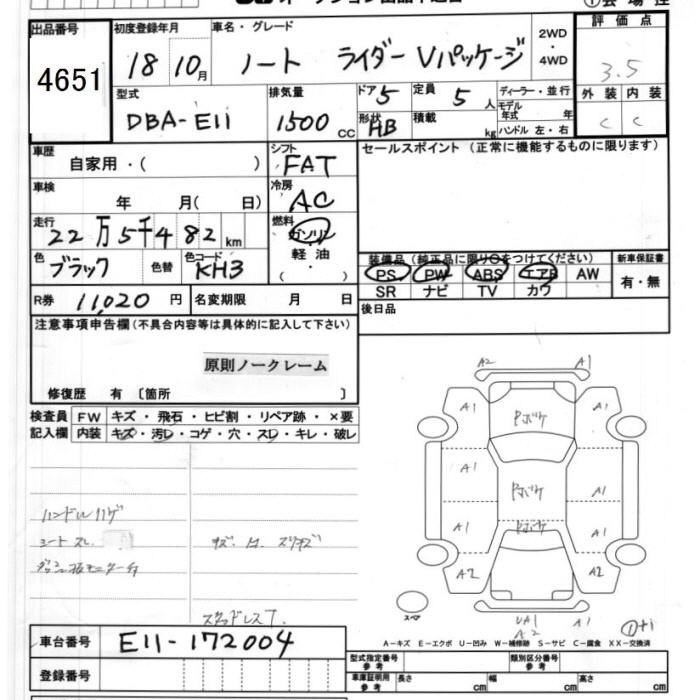 出品番号 4651
初度登録年月 18 10月
車名・グレード ノート ライダー Vパッケージ
2WD・4WD
評価点 3.5
型式 DBA-E11
排気量 1500 cc
ドア 5
定員 5人
ディーラー・並行
モデル年式 年
形状 HB
積載 kg
ハンドル 左・右
外装 C
内装 C
車歴 自家用・( )
シフト FAT
セールスポイント (正常に機能するものに限ります)
車検 年 月( 日)
冷房 AC
走行 22万5千482km
燃料 ガソリン 軽油・
色 ブラック
色替
色コード KH3
装備品 (純正品に限り○をつけてください)
PS PW ABS エアB AW
SR ナビ TV カワ
新車保証書 有・無
R券 11,020円
名変期限 月 日
後日品
注意事項申告欄(不具合内容等は具体的に記入して下さい)
原則ノークレーム
修復歴 有 〔箇所 〕
検査員記入欄
FW キズ・飛石・ヒビ割・リペア跡・×要
内装 キズ・汚レ・コゲ・穴・スレ・キレ・破レ
ハンドルハゲ
シートスレ
スタッドレスT.
A2 A1
A1 Pボケ A1
A1 Pボケ A1
A1 Pボケ A1
A2 A2
スペア
UA1 A1
A2
A-キズ E-エクボ U-凹み W-補修跡 S-サビ C-腐食 XX-交換済
車台番号 E11-172004
登録番号
型式指定番号 参考
類別区分番号 参考
車庫証明用 参考 長さ cm 幅 cm 高さ cm